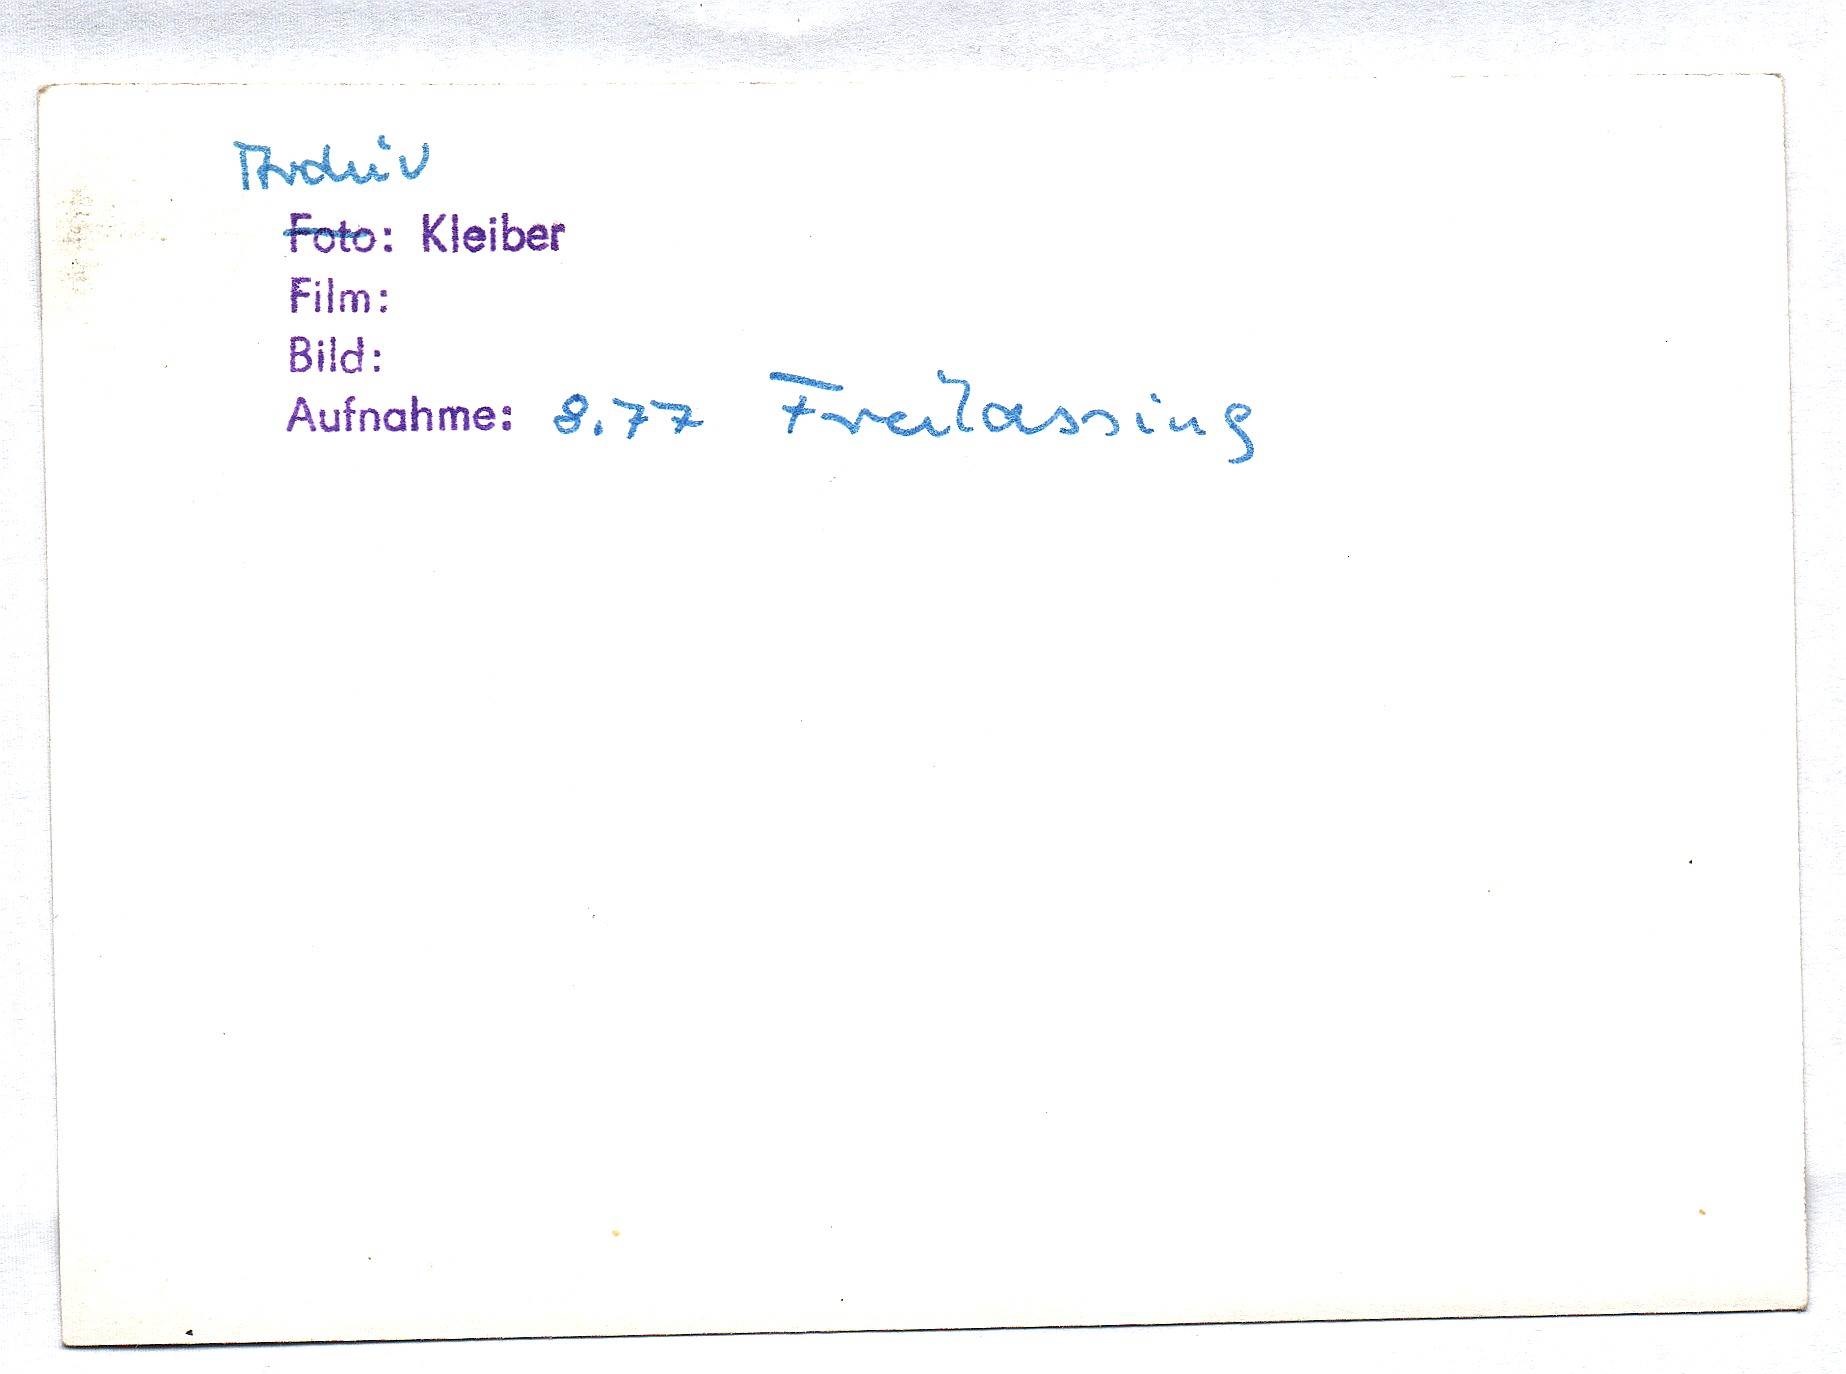 Archiv
Foto: Kleiber
Film:
Bild:
Aufnahme: 8.77 Freilassing